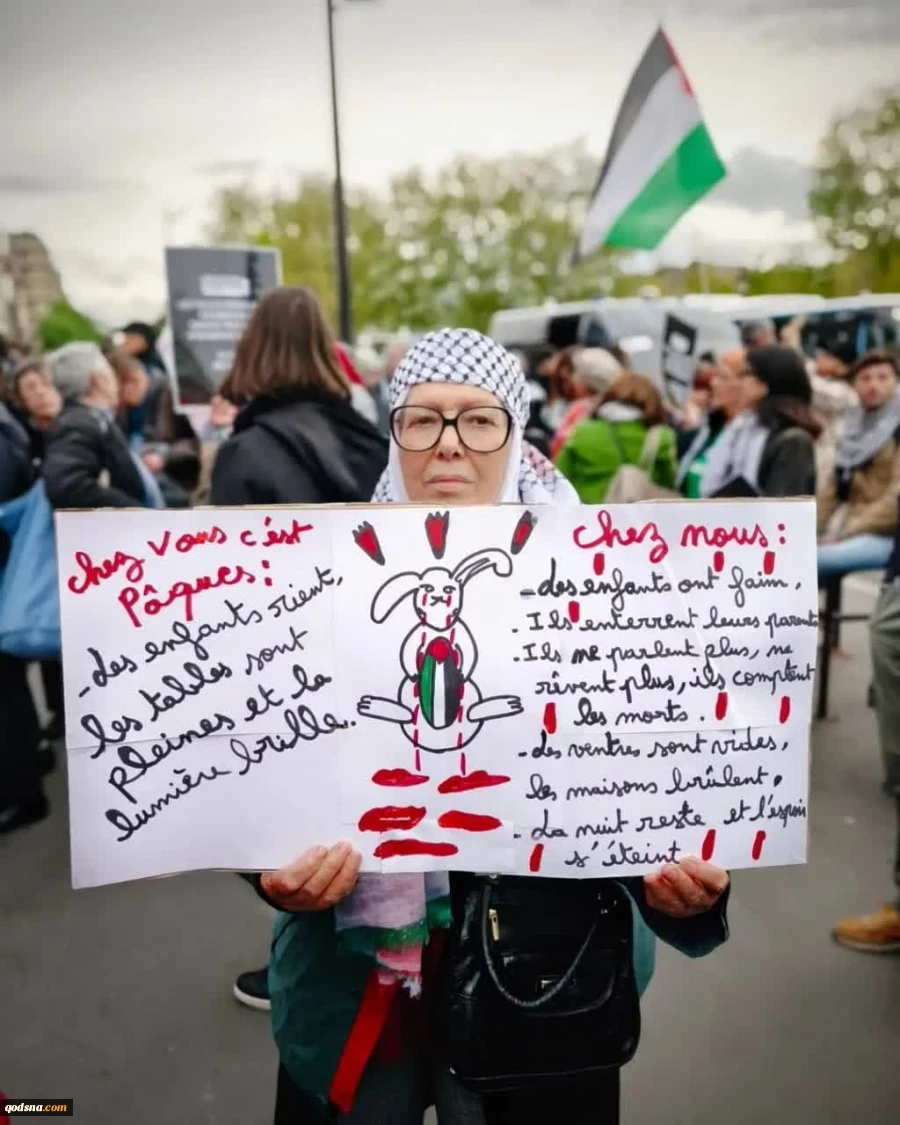 chez vous c'est
Pâques :
- des enfants rient,
les tables sont
pleines et la
lumière brille.
chez nous :
- des enfants ont faim,
. Ils enterrent leurs parents
. Ils ne parlent plus, ne
rêvent plus, ils comptent
les morts.
- des ventres sont vides,
les maisons brûlent.
. La nuit reste et l'espoir
s'éteint
qodsna.com